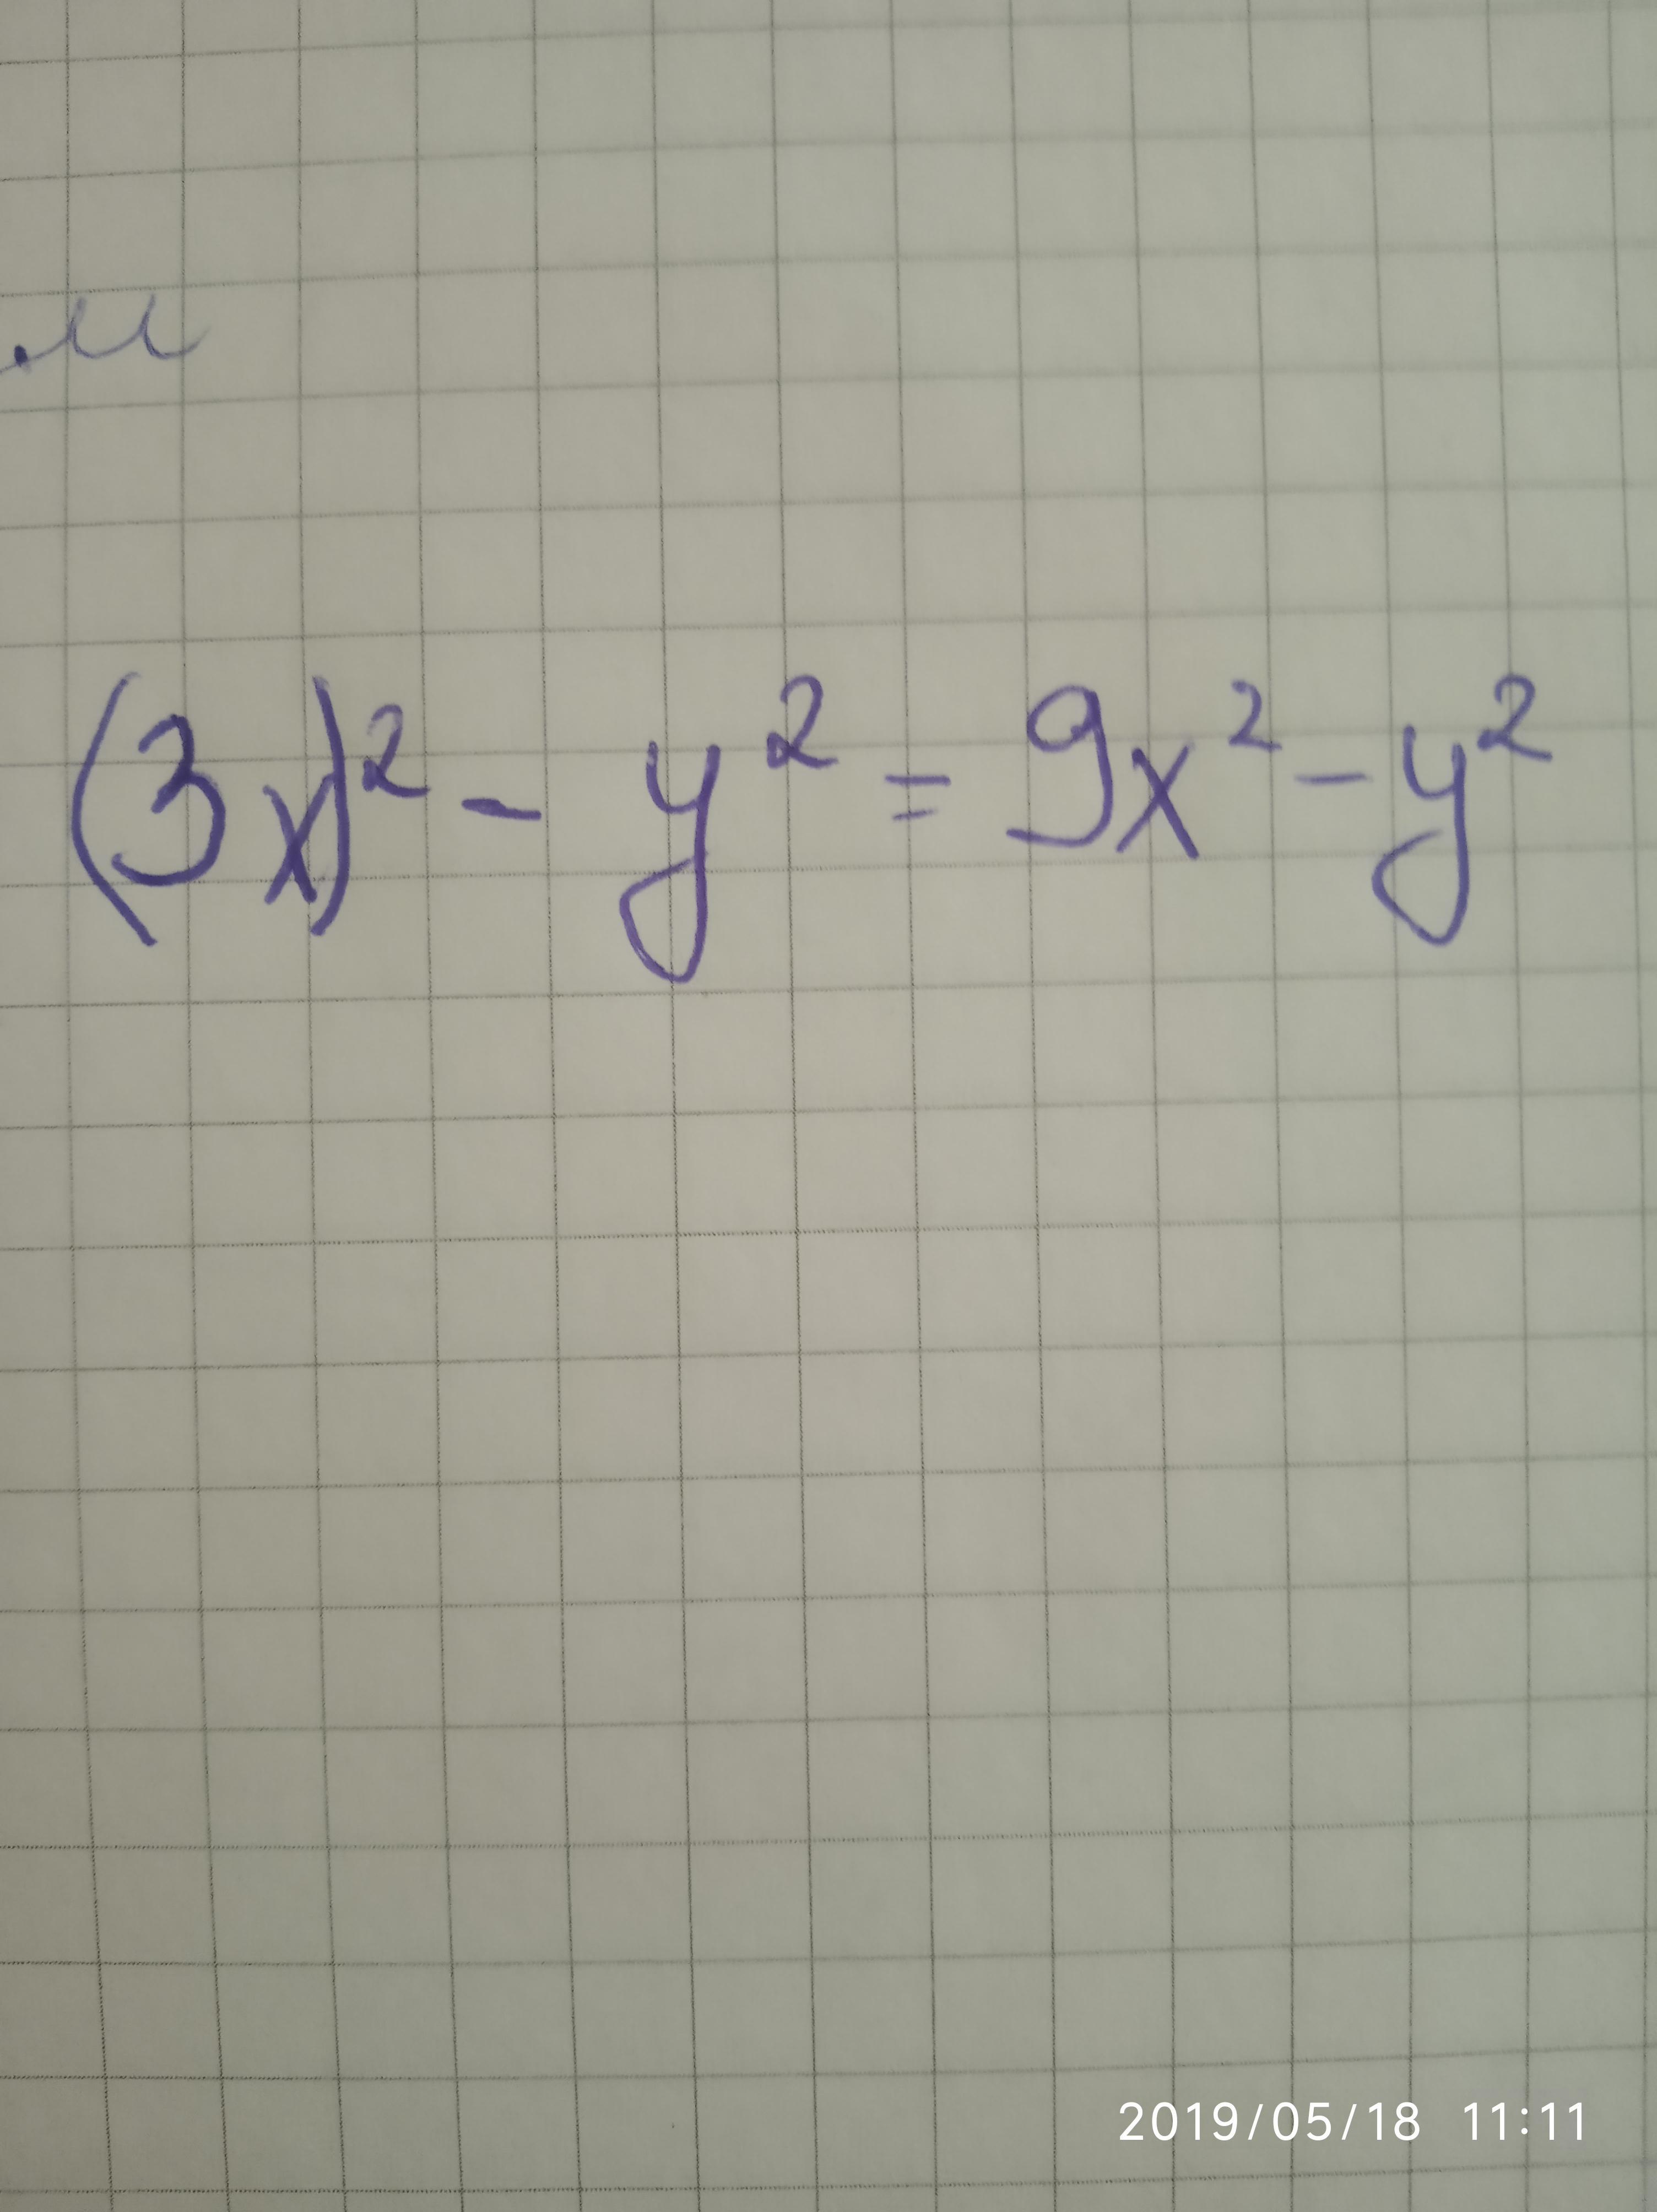 (3x)² - y² = 9x² - y²
2019/05/18 11:11